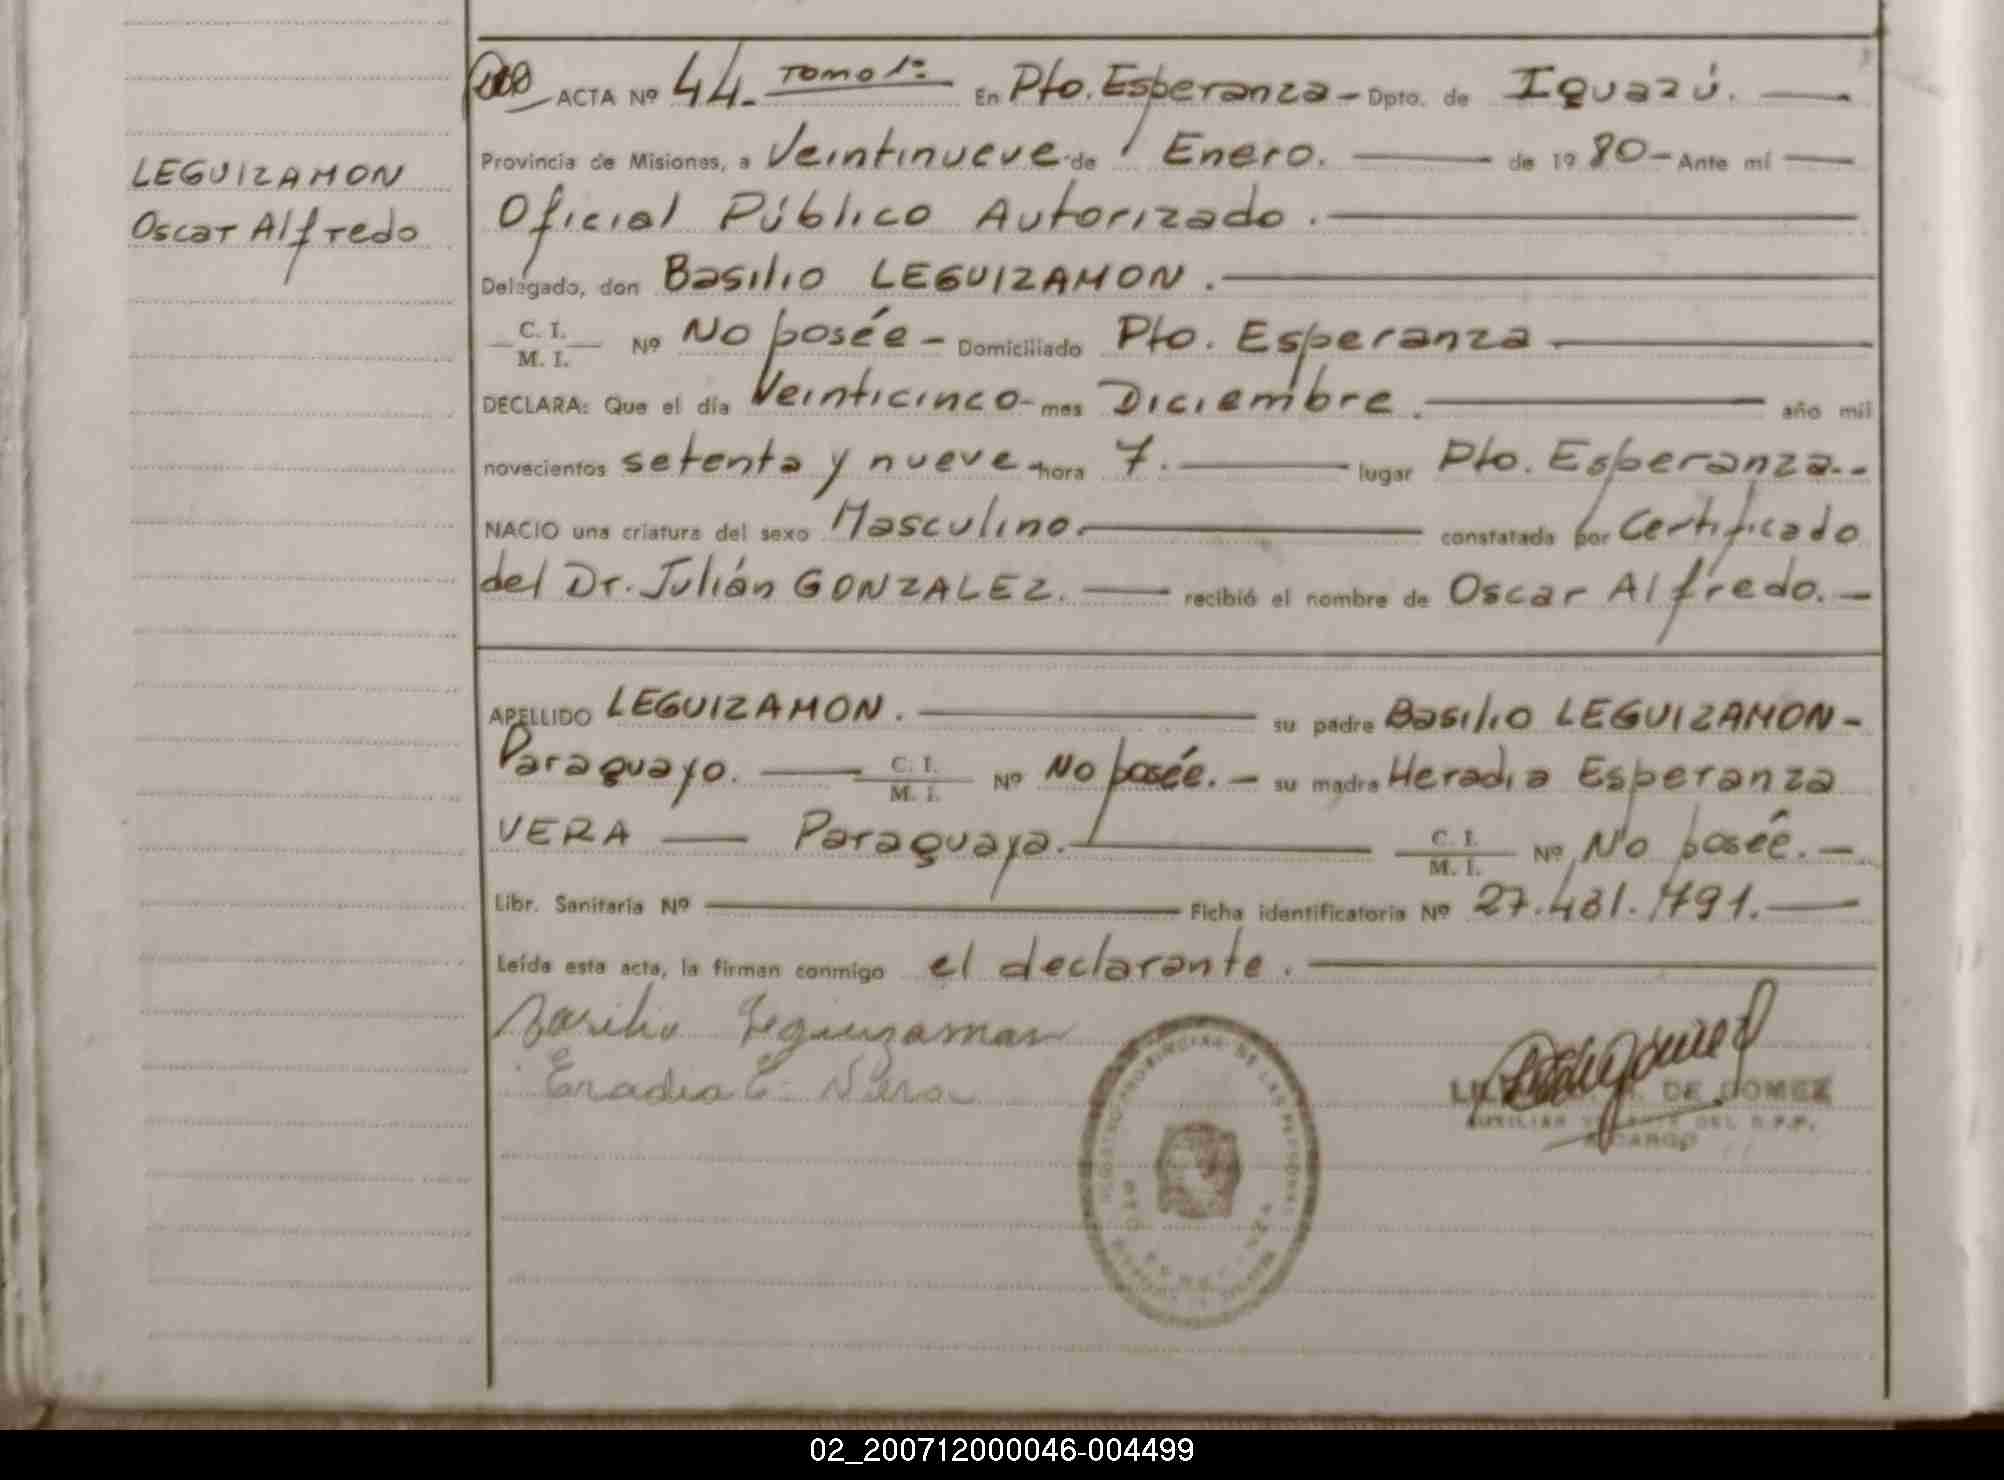 LEGUIZAMON
Oscar Alfredo
ACTA Nº 44. Tomo 1º En Pto. Esperanza - Dpto. de Iguazú.
Provincia de Misiones, a Veintinueve de Enero. de 1980 - Ante mí
Oficial Público Autorizado.
Delegado, don Basilio LEGUIZAMON.
C. I. / M. I. Nº No posée - Domiciliado Pto. Esperanza
DECLARA: Que el día Veinticinco - mes Diciembre. año mil
novecientos setenta y nueve - hora 7. lugar Pto. Esperanza.--
NACIO una criatura del sexo Masculino. constatada por Certificado
del Dr. Julián GONZALEZ. recibió el nombre de Oscar Alfredo. -
APELLIDO LEGUIZAMON. su padre Basilio LEGUIZAMON -
Paraguayo. C. I. / M. I. Nº No posée. - su madre Heradia Esperanza
VERA Paraguaya. C. I. / M. I. Nº No posée. -
Libr. Sanitaria Nº Ficha identificatoria Nº 27.431.791.
Leída esta acta, la firman conmigo el declarante.
Basilio Leguizamon
Eradia E. Vera
DE GOMEZ
A CARGO
02_200712000046-004499